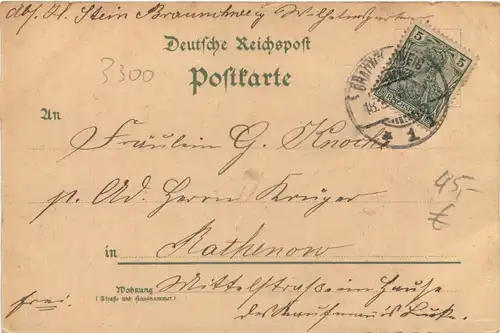 Stein Braunschweig Wilhelmgarten
Deutsche Reichspost
Postkarte
3300
5
BRAUNSCHWEIG
* 1
An
Fräulein G. Knoch
p. Ad. Herrn Krüger
in
Rathenow
Wohnung
(Straße und Hausnummer)
Mittelstraße im Hause
des Kaufmanns
frei.
45,-
€